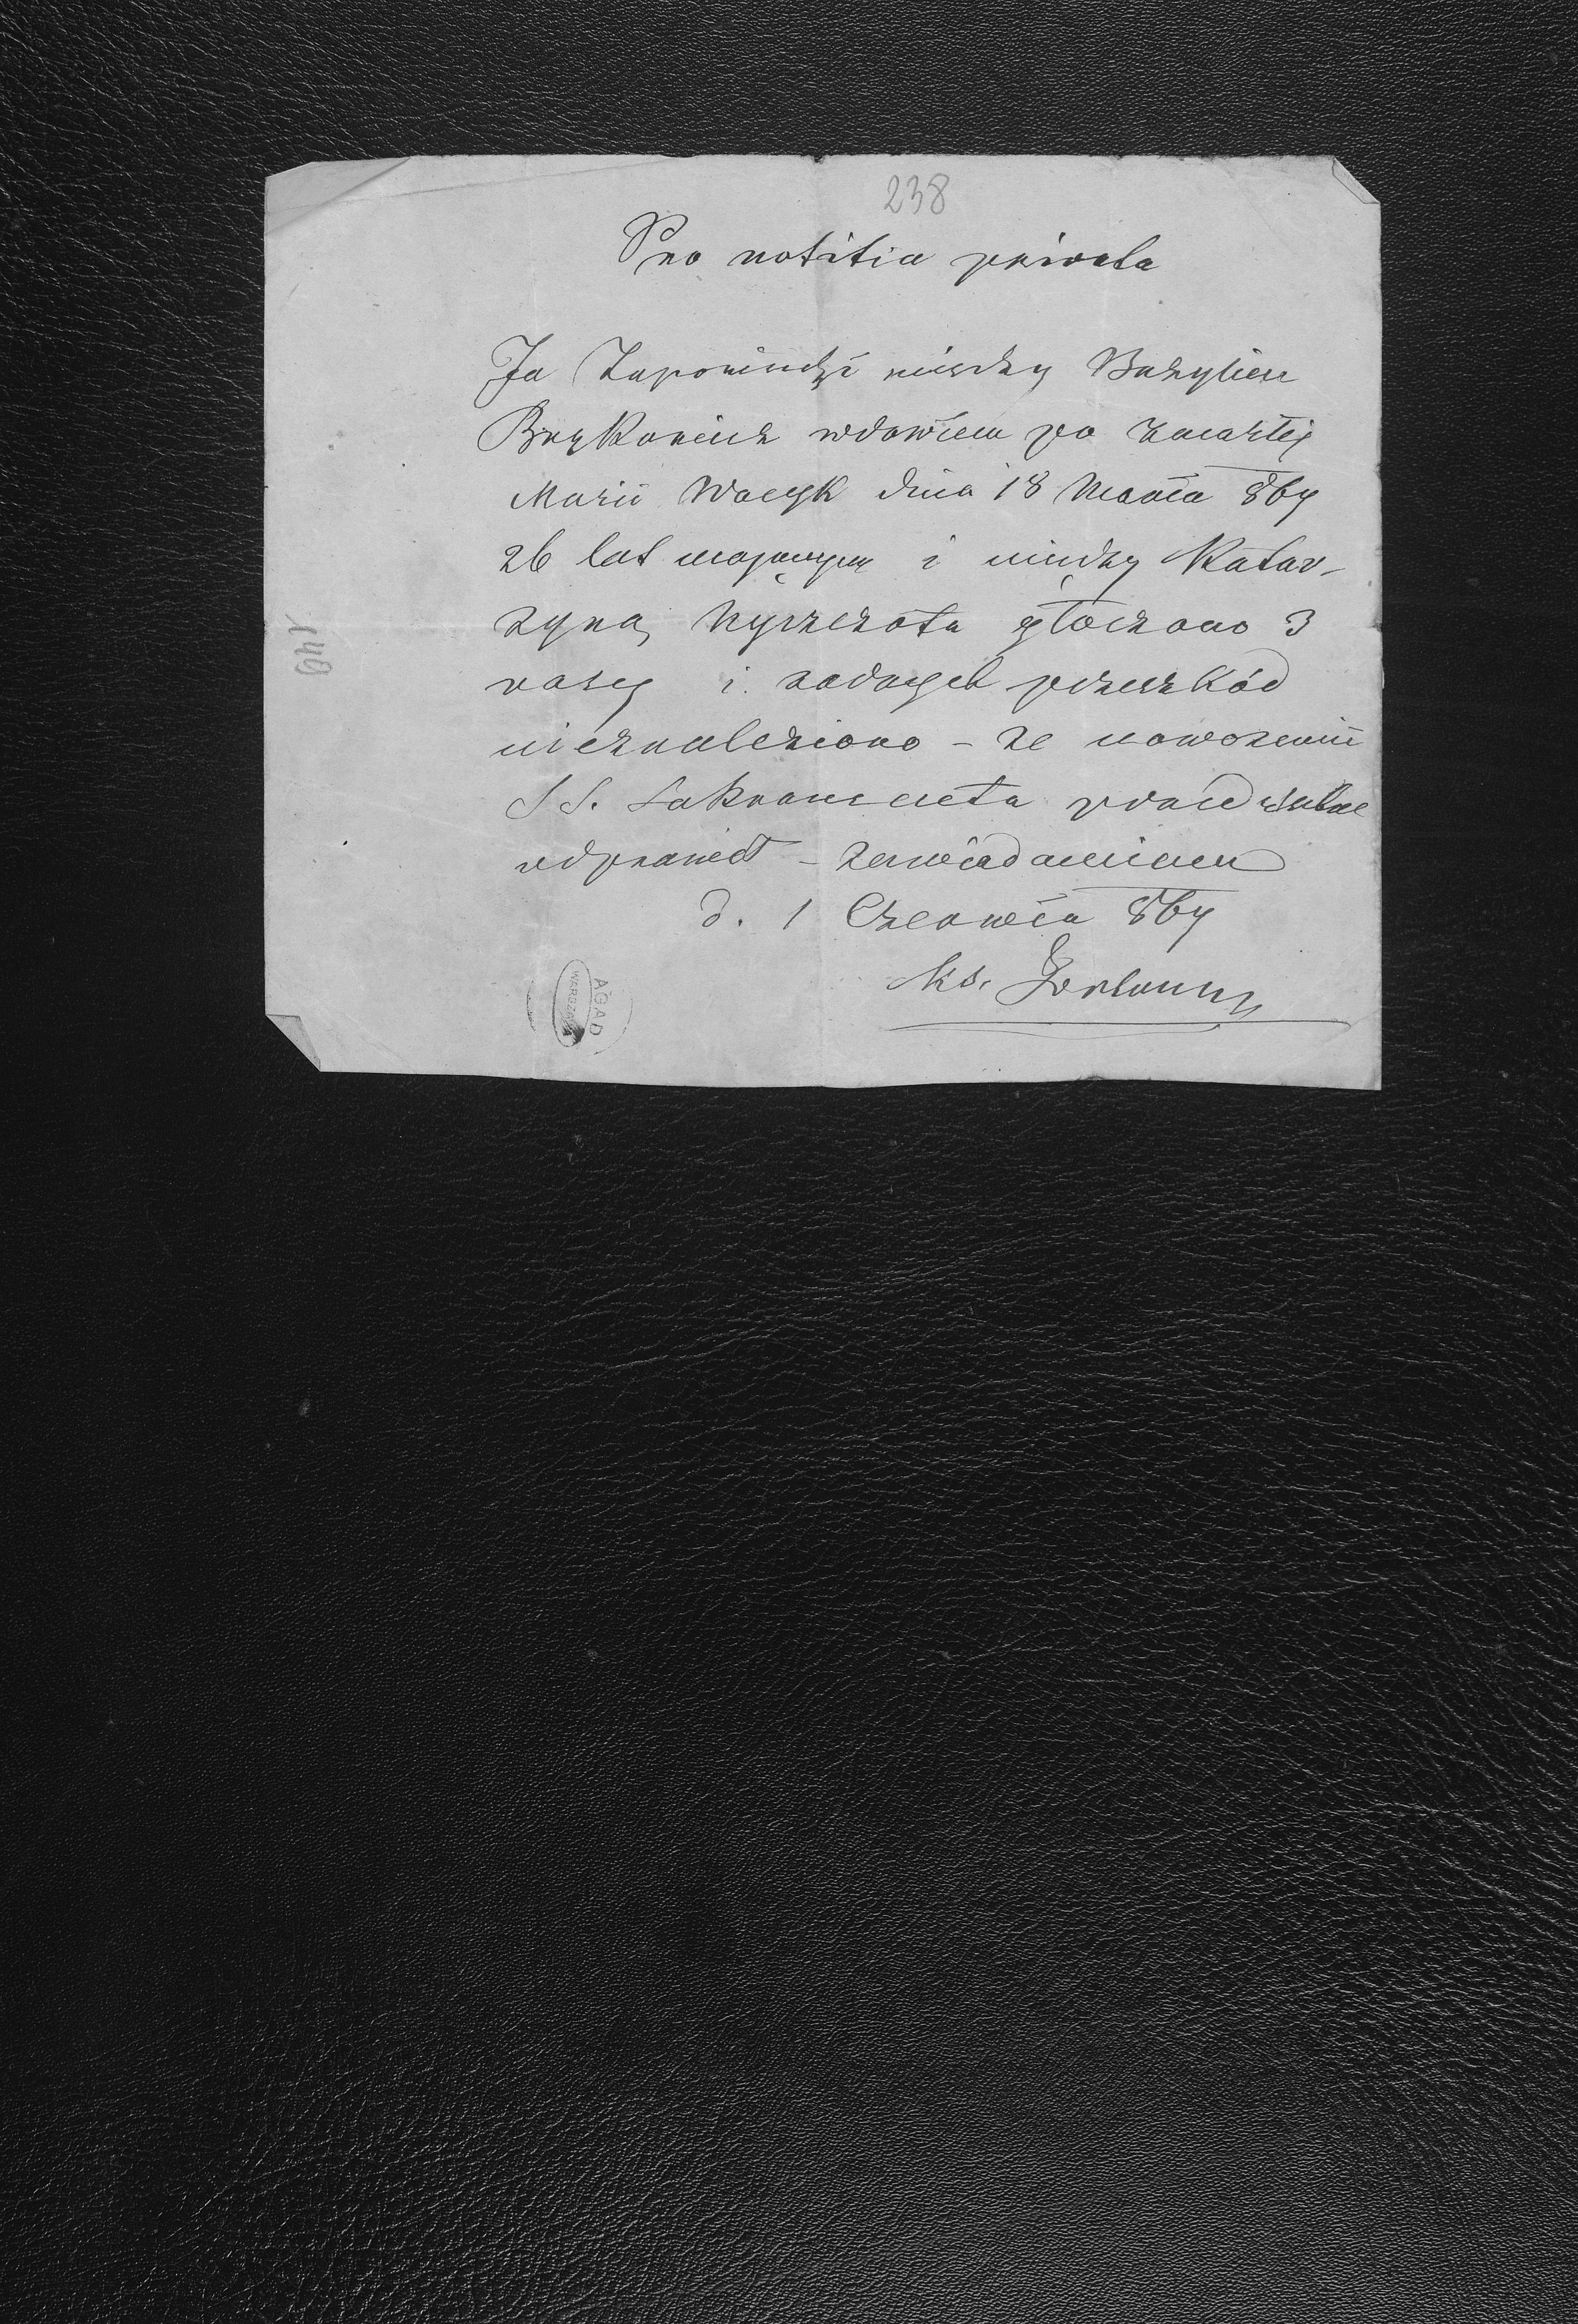 238
Pro notitia privata
Ja Zapowiedzi między Bazylim
Brykowicz wdowcem po zmarłej
Marii Wacyk dnia 18 Marca 869
26 lat mającym i między Katar-
zyną głoszono 3
razy i żadnych przeszkód
nieznaleziono – że nowożenii
SS. Sakramenta przed
odprawił – zawiadamiam
d. 1 Czerwca 869
Ks.
140
AGAD
WARSZAWA